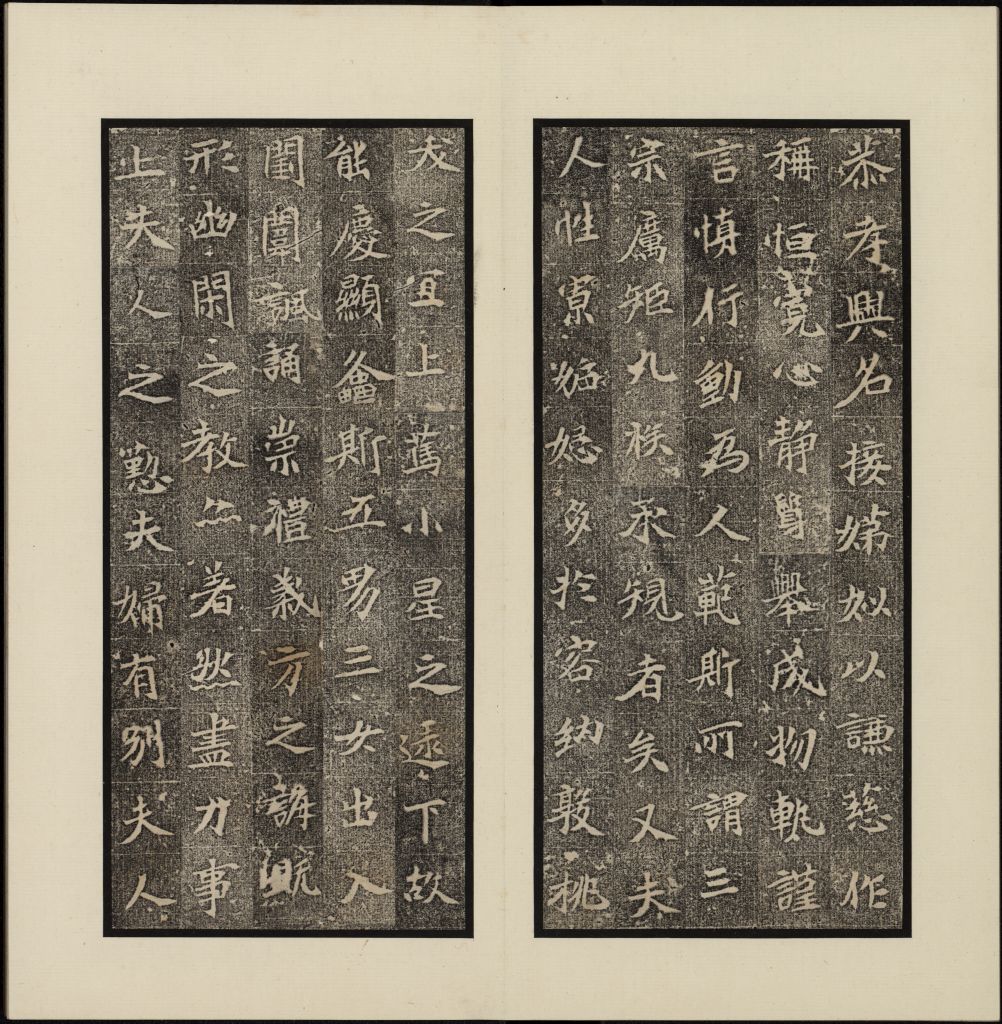 恭孝興名接娣姒以謙慈作
稱恒寬心静質舉成物軌謹
言慎行動為人範斯所謂三
宗厲矩九族承規者矣又夫
人性寡妬忌多於容納敦桃
夭之宜上篤小星之逮下故
能慶顯螽斯五男三女出入
閨闈諷誦崇禮義方之誨既
形幽閑之教亦著然盡力事
上夫人之懃夫婦有別夫人